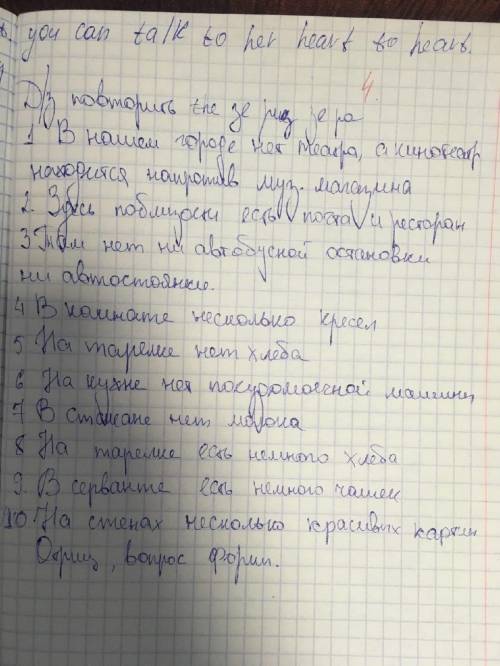 you can talk to her heart to heart.
4.
Д/з повторить the зе риз зе ра
1 В нашем городе нет театра, а кинотеатр
находится напротив муз. магазина
2. Здесь поблизости есть почта и ресторан
3 Там нет ни автобусной остановки
ни автостоянки.
4 В комнате несколько кресел
5 На тарелке нет хлеба
6 На кухне нет посудомоечной машины
7 В стакане нет молока
8 На тарелке есть немного хлеба
9. В серванте есть немного чашек
10. На стенах несколько красивых картин
Отриц, вопрос форм.